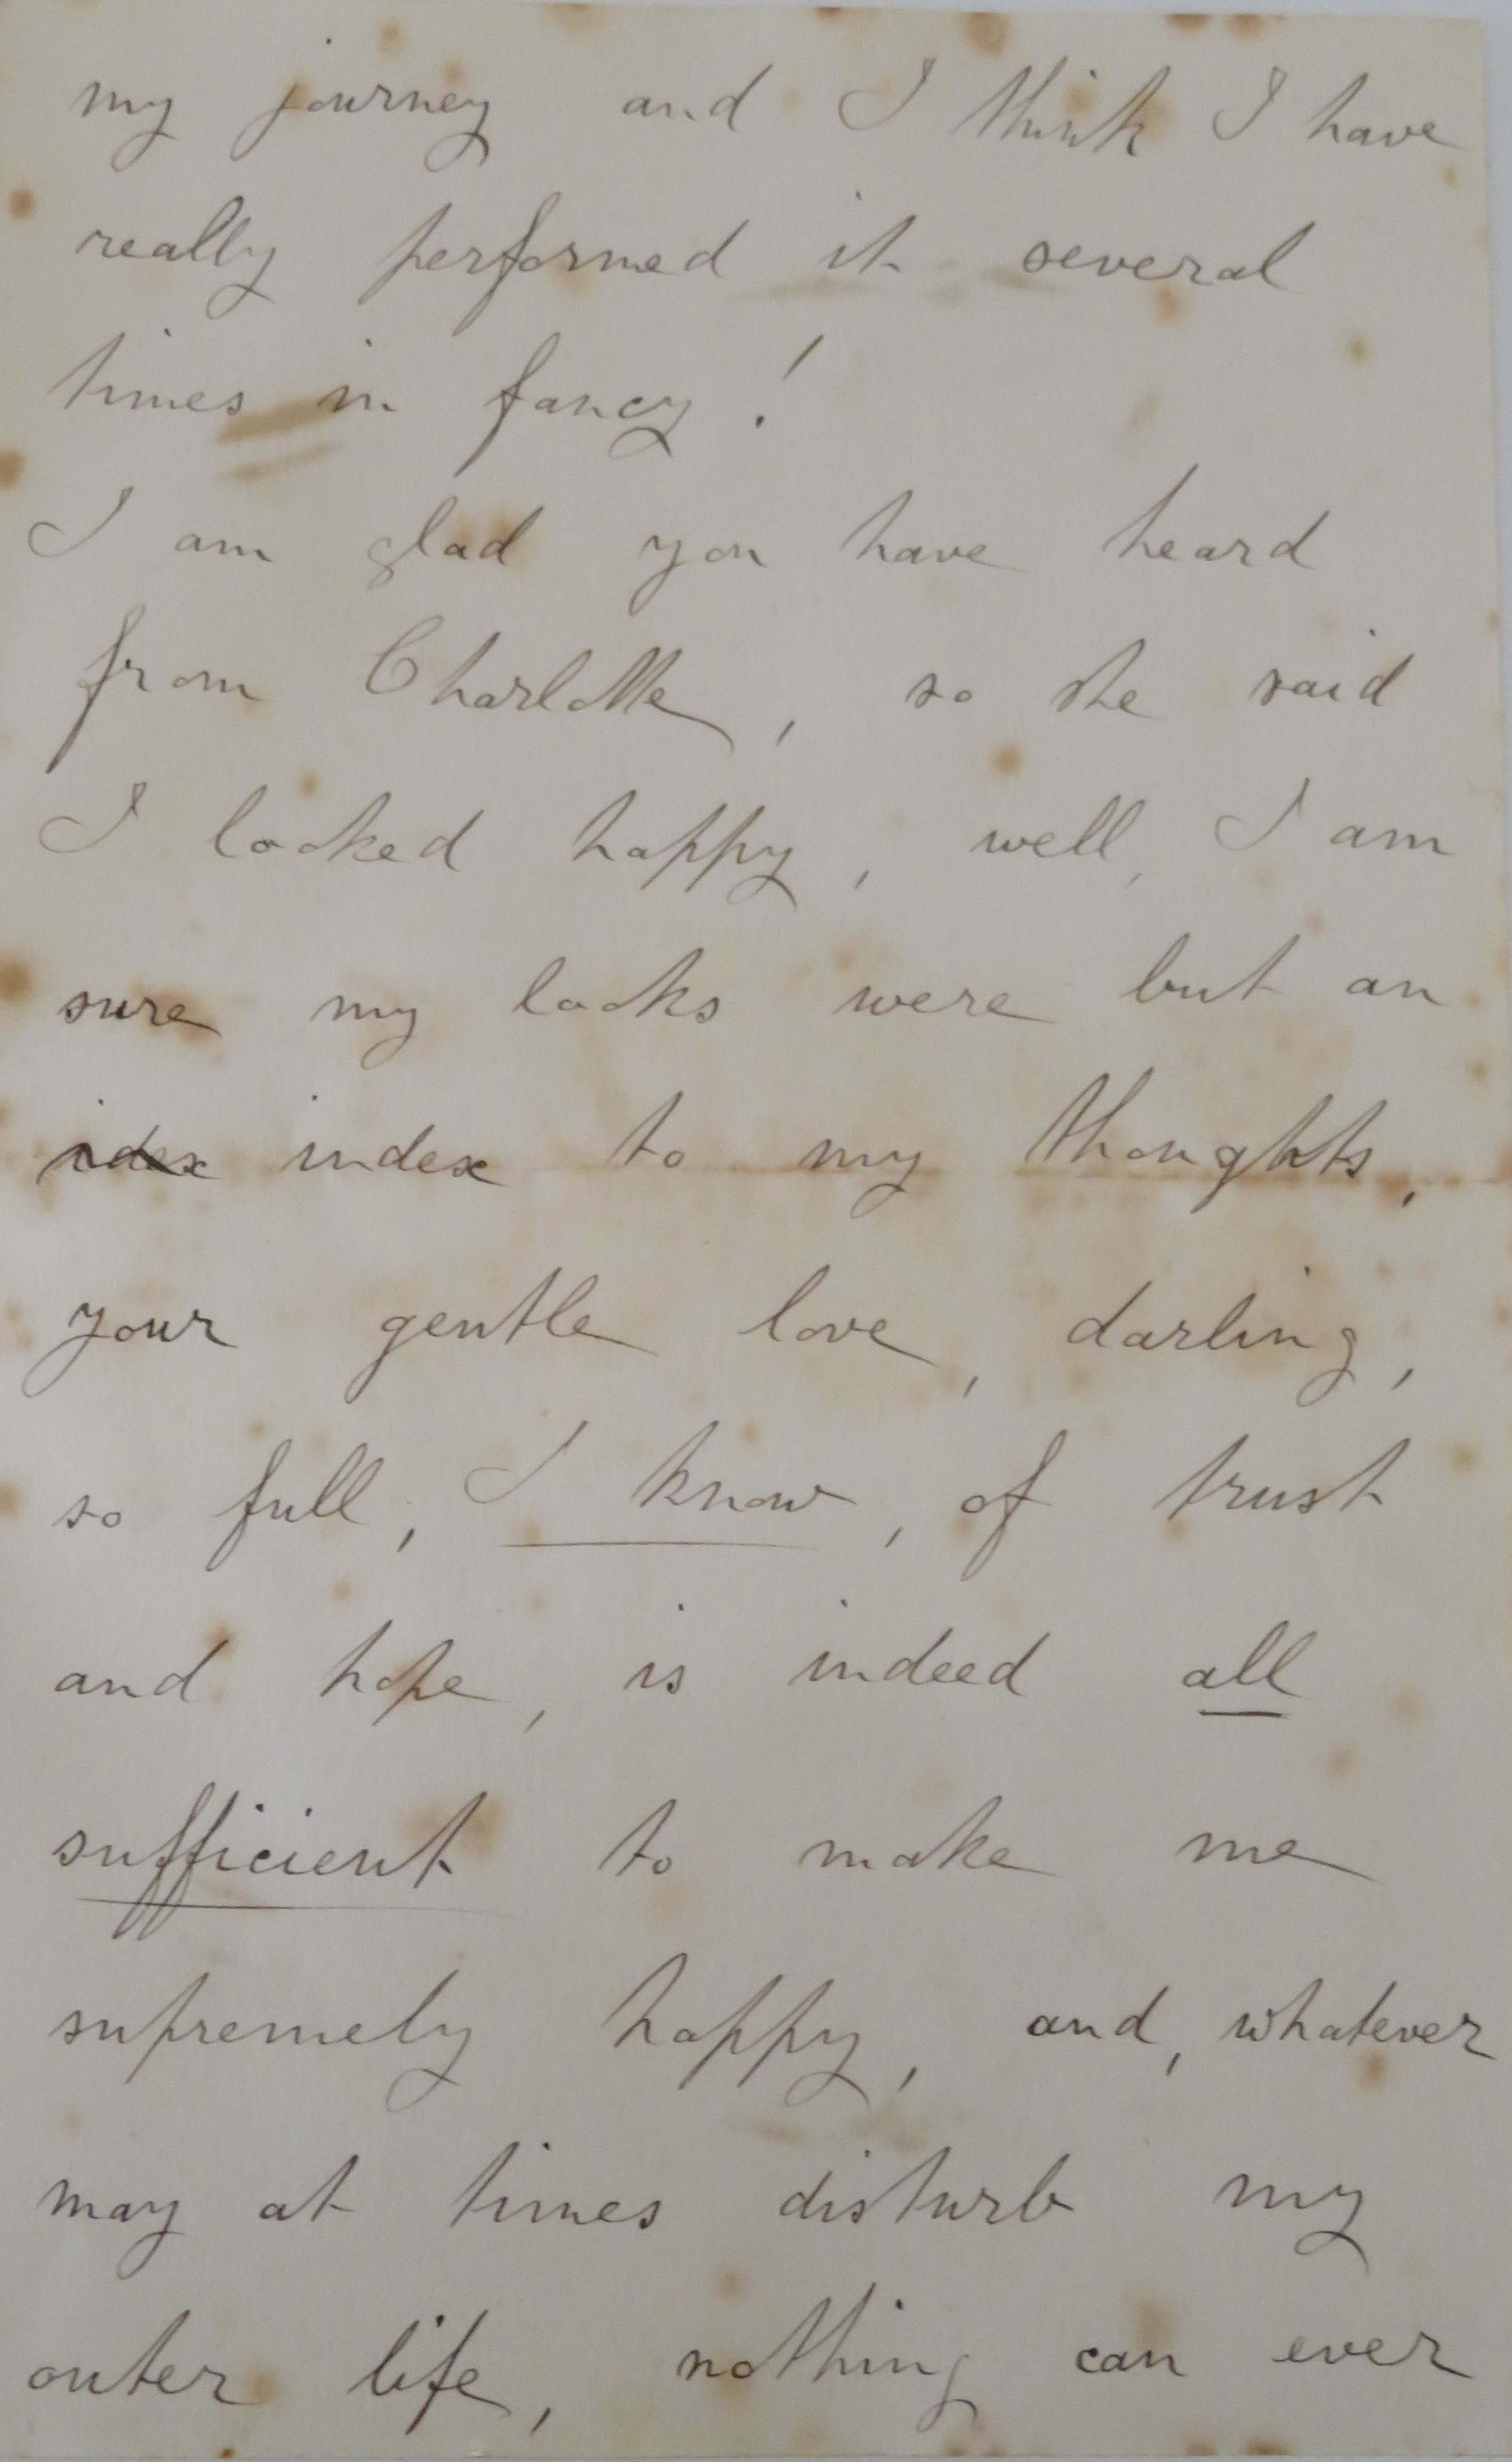 my journey and I think I have
really performed it several
times in fancy!
I am glad you have heard
from Charlotte, so she said
I looked happy, well, I am
sure my looks were but an
idex index to my thoughts,
your gentle love, darling,
so full, I know, of trust
and hope, is indeed all
sufficient to make me
supremely happy, and, whatever
may at times disturb my
outer life, nothing can ever